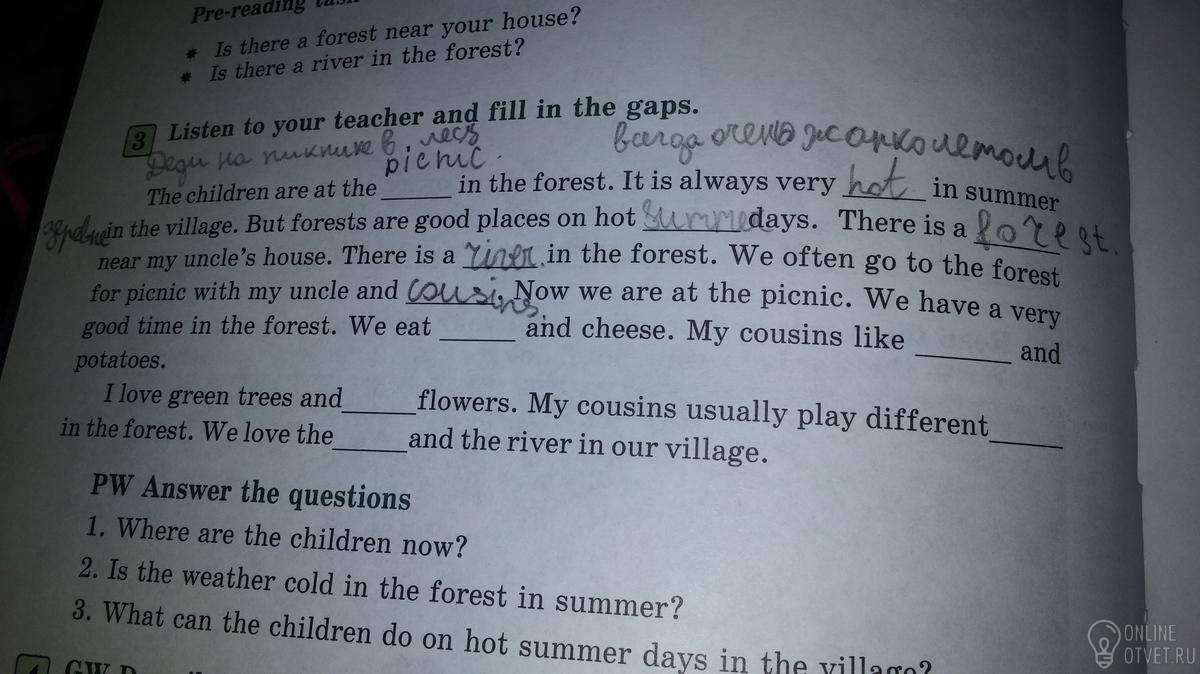 Pre-reading task
* Is there a forest near your house?
* Is there a river in the forest?
3 Listen to your teacher and fill in the gaps.
Деди на пикнике в лесу
всегда очень жарко летом в
picnic.
The children are at the _____ in the forest. It is always very hot in summer
in the village. But forests are good places on hot summe days. There is a forest.
near my uncle's house. There is a river. in the forest. We often go to the forest
for picnic with my uncle and cousins. Now we are at the picnic. We have a very
good time in the forest. We eat _____ and cheese. My cousins like _____ and
potatoes.
I love green trees and _____ flowers. My cousins usually play different _____
in the forest. We love the _____ and the river in our village.
PW Answer the questions
1. Where are the children now?
2. Is the weather cold in the forest in summer?
3. What can the children do on hot summer days in the village?
4 GW
ONLINE
OTVET.RU